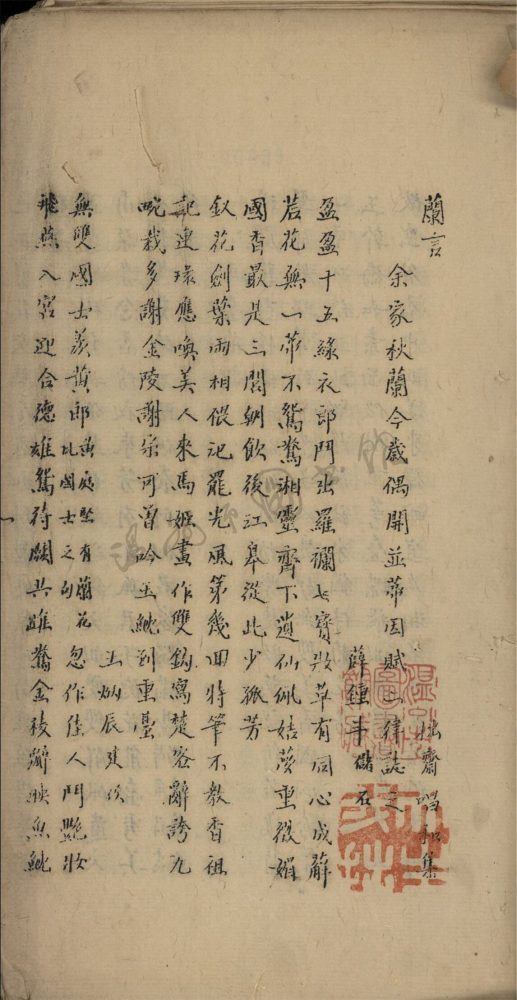 蘭言
松齋唱和集
余家秋蘭今歲偶開並蒂因賦一律誌之
薛鍾斗儲石
盈盈十五綠衣郎鬥出羅襴七寶妝草有同心成辭
若花無一蒂不鴛鴦湘靈齊下遺仙佩姞夢重徵媚
國香最是三閭朝飲後江皋從此少孤芳
釵花劍葉兩相偎記罷光風第幾回特筆不教香祖
記連環應喚美人來馬姬畫作雙鉤寫楚客辭誇九
畹栽多謝金陵謝宗可曾吟玉魫到重臺
王炳辰建侯
無雙國士羨黃郎黃庭堅有蘭花比國士之句忽作佳人鬥艷妝
飛燕入宮迎合德雄鴛待闕共雌鴦金稜辭映魚魫